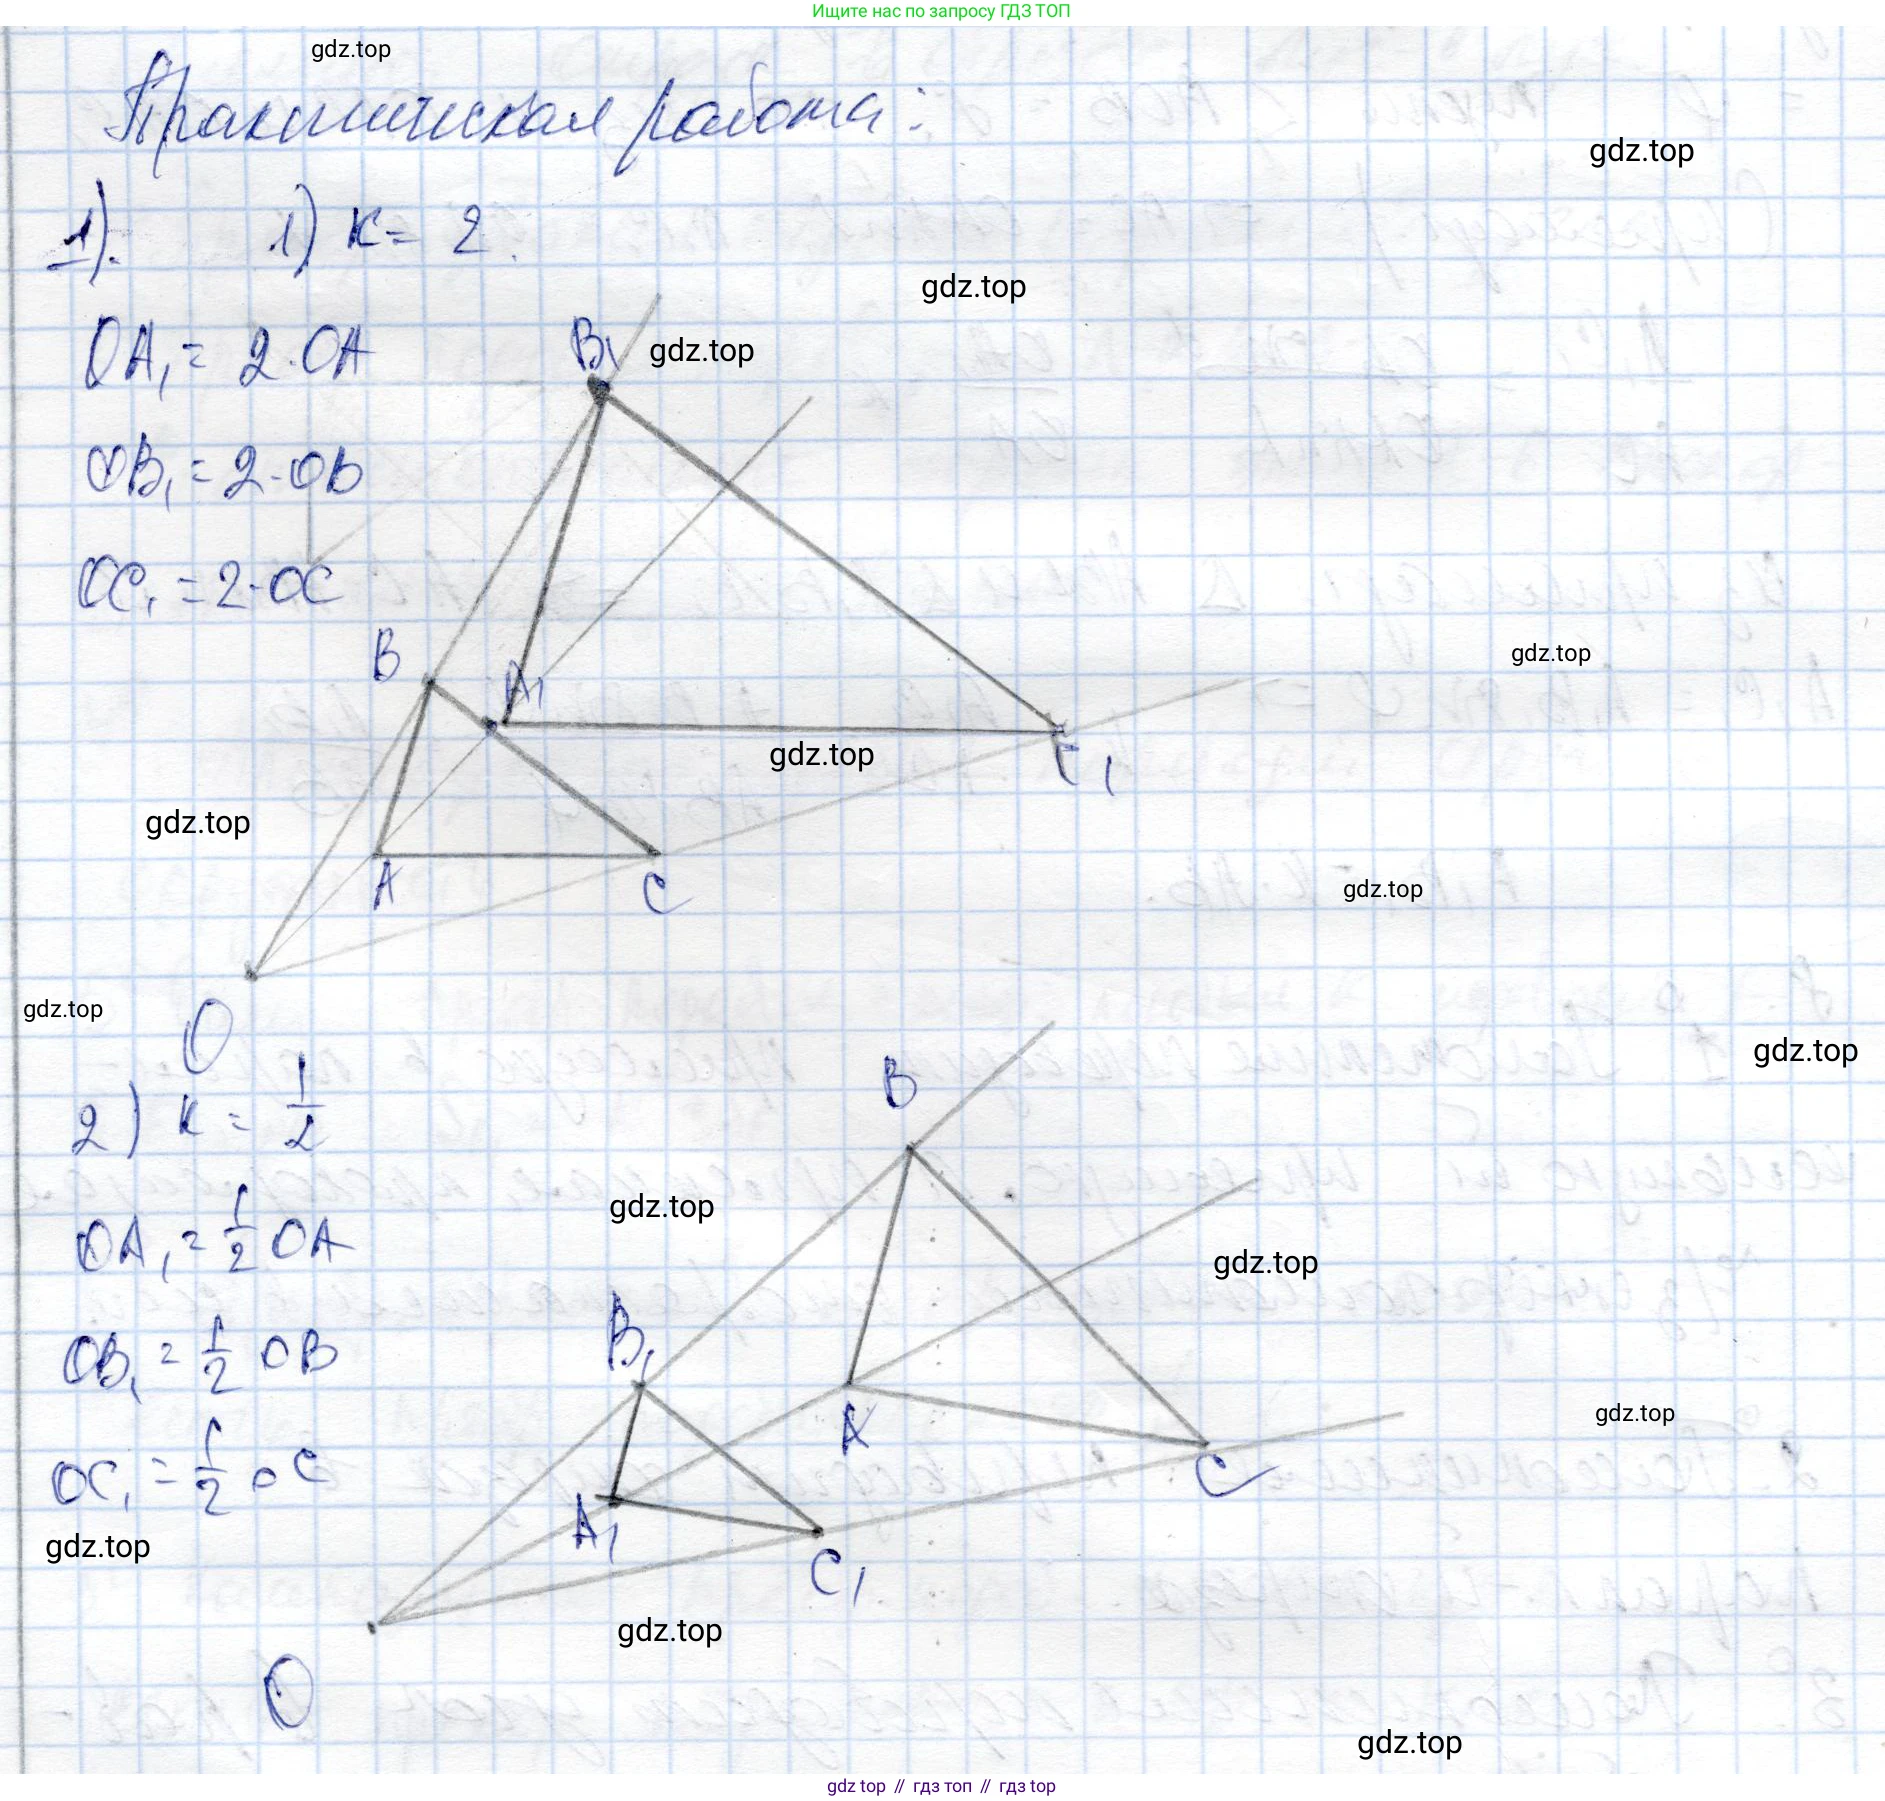 Ищите нас по запросу ГДЗ ТОП
gdz.top
Практическая работа:
gdz.top
1). 1) к = 2
gdz.top
OA₁ = 2·OA
B₁
gdz.top
OB₁ = 2·OB
OC₁ = 2·OC
B
gdz.top
A₁
gdz.top
C₁
gdz.top
A
C
gdz.top
gdz.top
O
gdz.top
2) к = 1/2
B
OA₁ = 1/2 OA
gdz.top
gdz.top
OB₁ = 1/2 OB
B₁
gdz.top
A
OC₁ = 1/2 OC
C
A₁
gdz.top
C₁
gdz.top
O
gdz.top
gdz top // гдз топ // гдз top